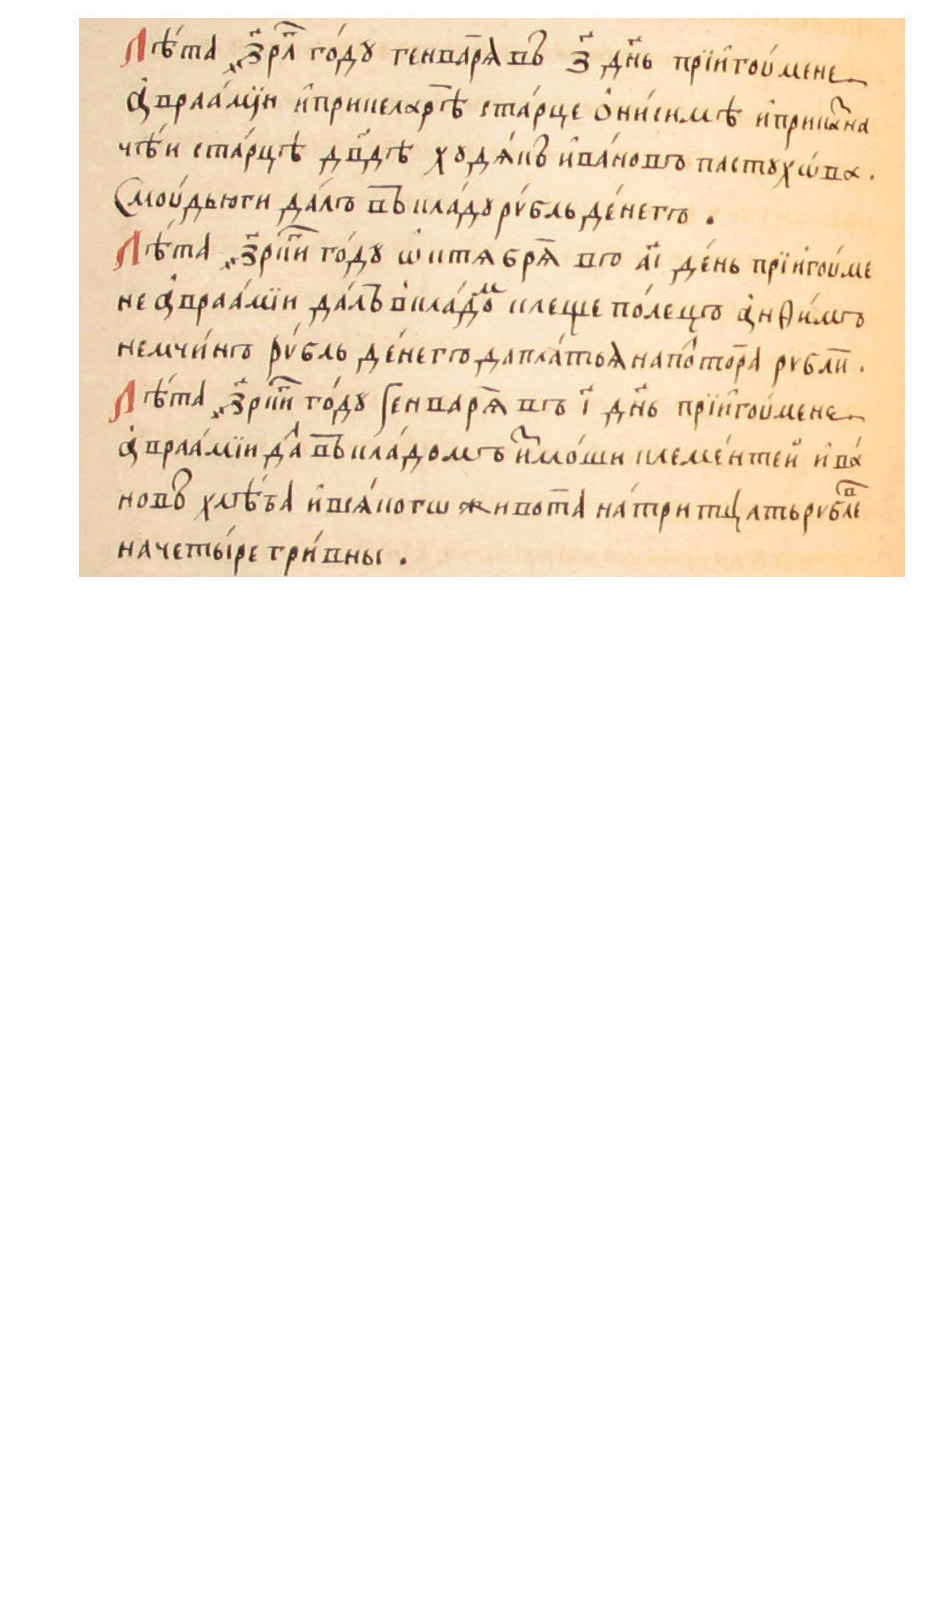 Лѣ́та ҂зрл го́дꙋ генварѧ въ з днь при игоу́мене
а҆враа́мїи и҆ при келарѣ ста́рце ѻ҆ни́симѣ и҆ при казна
чѣ́и ста́рцѣ дв҃дѣ ходѧ́къ и҆ва́новъ пастꙋхо́ва.
с моу́дьюги да́лъ въ вкла́дꙋ рꙋ́бль де́негъ.
Лѣ́та ҂зрни го́дꙋ ѡ҆ктѧбрѧ въ аı де́нь при игоу́ме
не а҆враа́мїи да́лъ вкла́дꙋм клеще по́лецъ а҆нѳи́мъ
немчи́нъ рꙋ́бль де́негъ да пла́тьѧ на полтора рꙋбли.
Лѣ́та ҂зрни го́дꙋ генварѧ въ ı днь при игоу́мене
а҆враа́мїи дал въ вкла́домъ тимо́ши клеме́нтей и҆ва́
новъ хлѣ́ба и҆ всѧ́когѡ живота на́ тритцать рꙋблевъ
на четы́ре гри́вны.